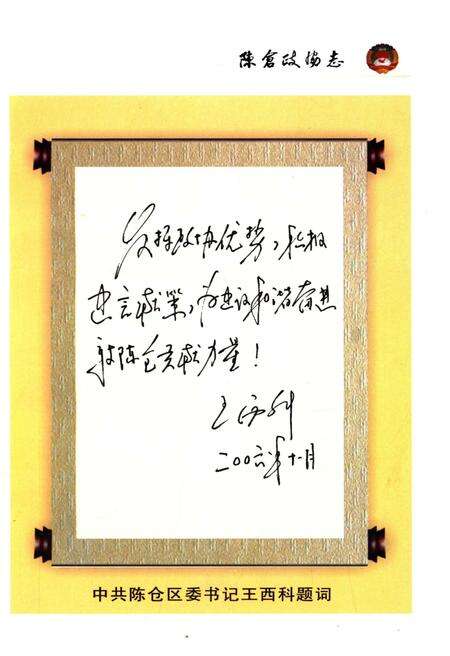 陈仓政协志
发挥政协优势，积极
建言献策，为建设和谐奋进
新陈仓贡献力量！
王西科
二〇〇六年十一月
中共陈仓区委书记王西科题词